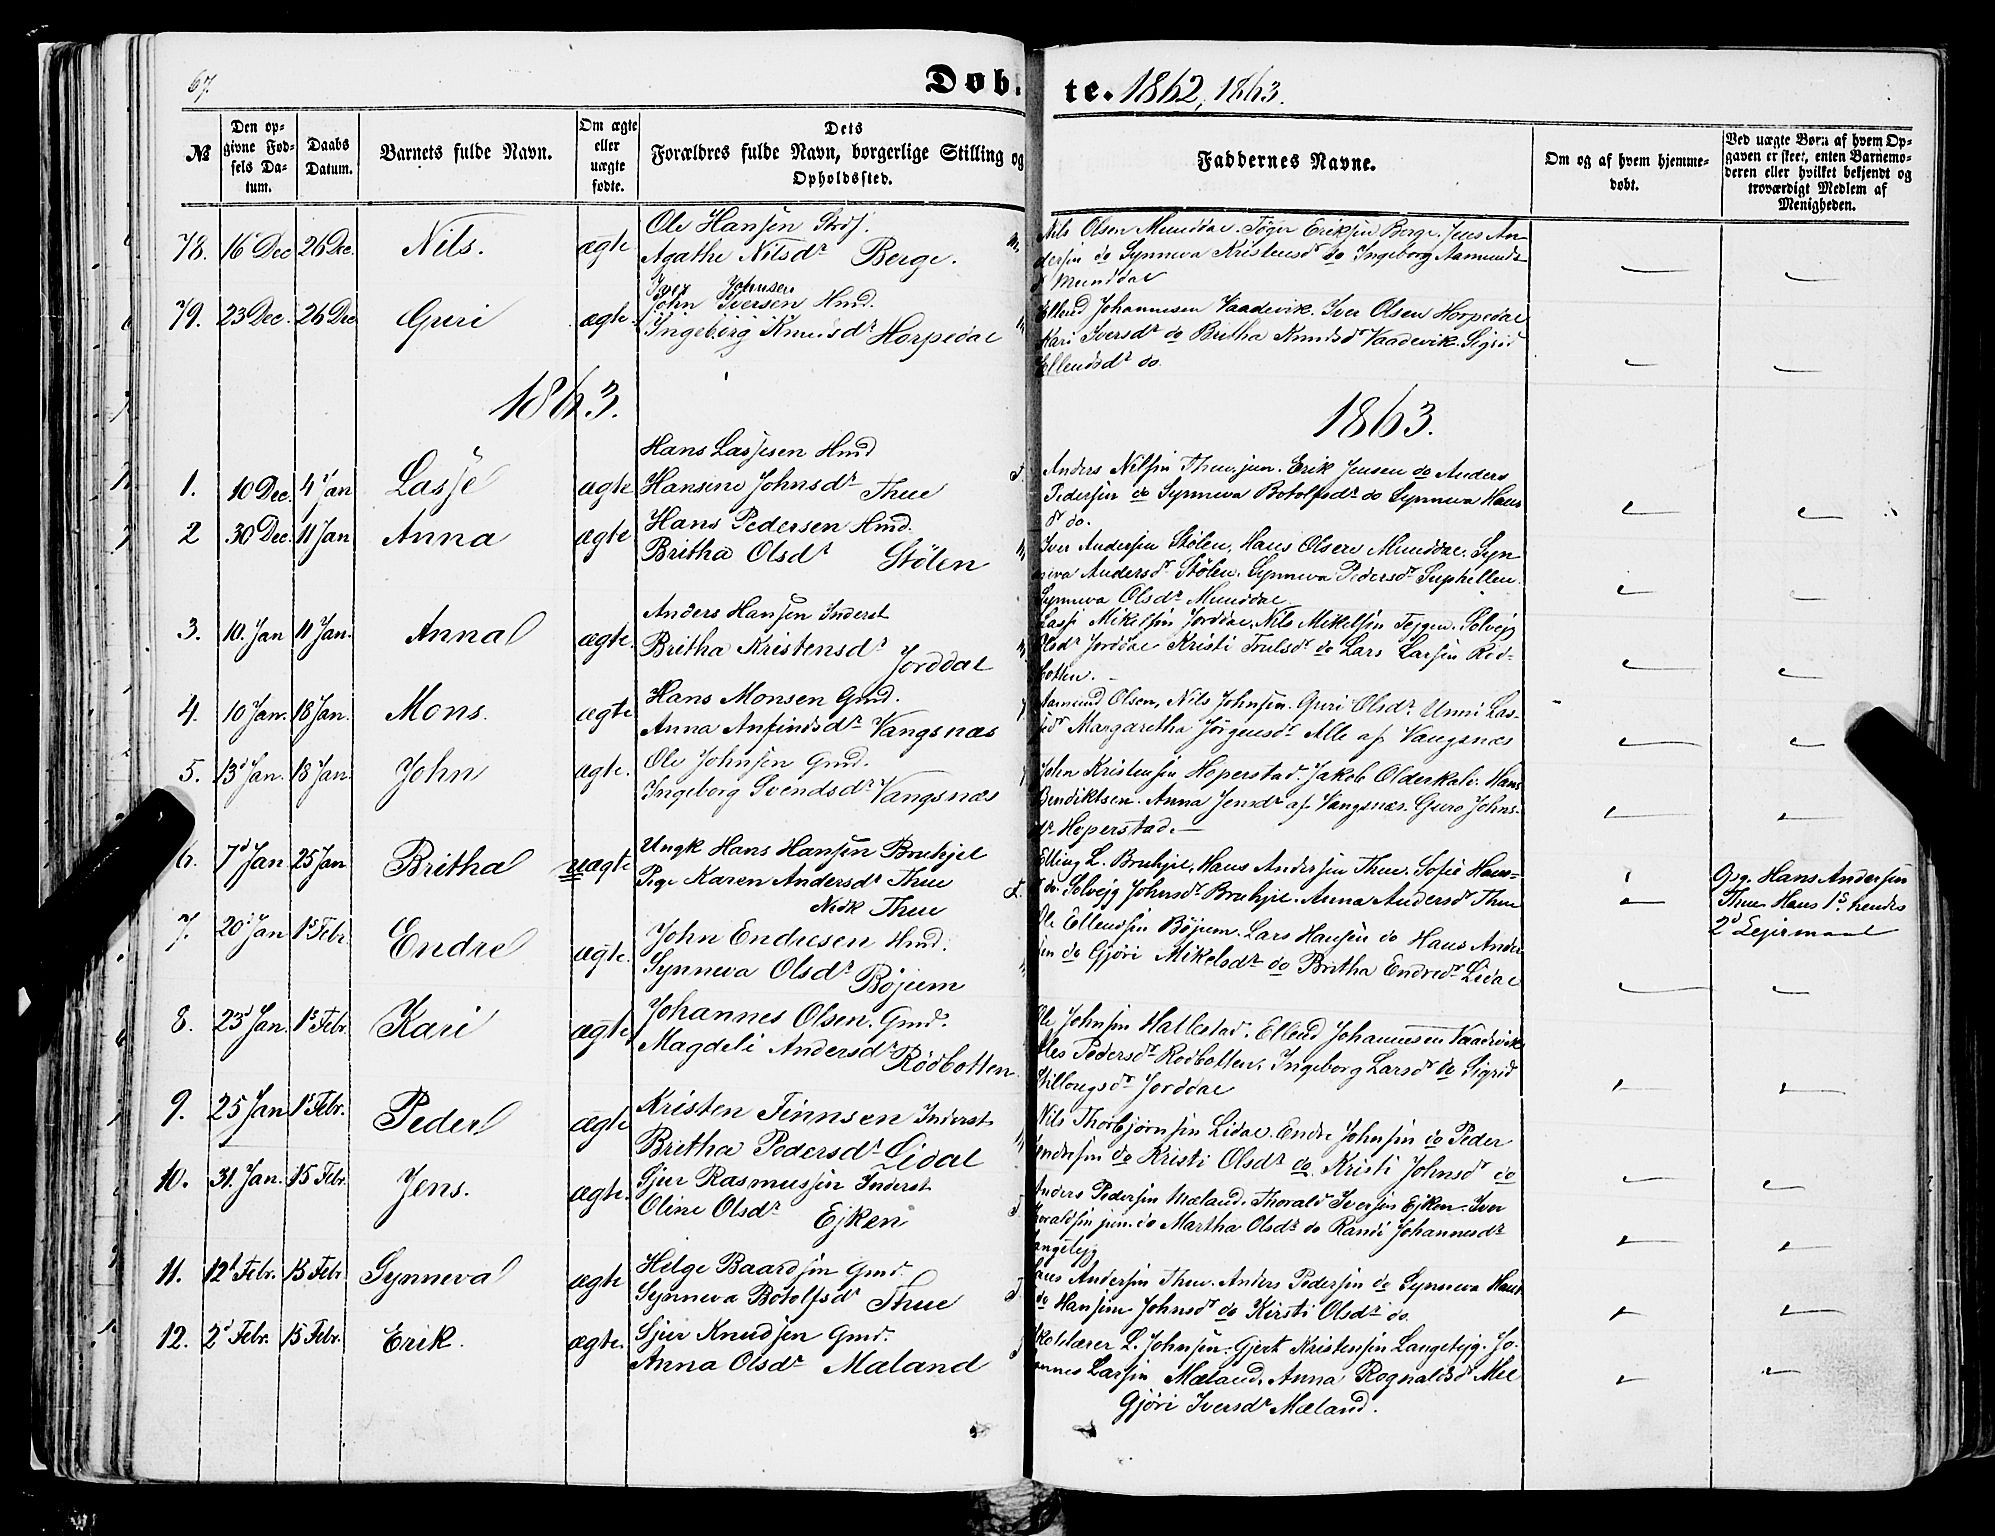 67.
Døb- te. 1862, 1863.
№
Den op-
givne Fød-
sels Da-
tum.
Daabs
Datum.
Barnets fulde Navn.
Om ægte
eller
uægte
fødte.
Dets
Forældres fulde Navn, borgerlige Stilling og
Opholdssted.
Faddernes Navne.
Om og af hvem hjemme-
døbt.
Ved uægte Børn af hvem Op-
gaven er skeet, enten Barnemo-
deren eller hvilket bekjendt og
troværdigt Medlem af
Menigheden.
78. 16 Dec 26 Dec. Nils. ægte
Ole Hansen
Agathe Nilsdr Berge.
Nils Olsen Munddal. Tøger Eriksen Berge. Jens An-
dersen do Synneva Kristensd do Ingeborg Aamunds-
d Munddal
79. 23 Dec. 26 Dec Guri ægte.
Iver Johnsen
John Iversen Hmd.
Ingeborg Knudsdr Horpedal
Ellend Johannesen Vaadevik. Iver Olsen Horpedal
Kari Iversdr do Britha Knudsd Vaadevik. Sigrid
Ellendsdr do.
1863. 1863.
1. 10 Dec. 4 Jan Lasse ægte
Hans Lassesen Hmd
Hansine Johnsdr Thue
Anders Nilsen Thue jun. Erik Jensen do Anders
Pedersen do Synneva Botolfsdr do Synneva Hans
dr do.
2 30 Dec. 11 Jan Anna ægte
Hans Pedersen Hmd.
Britha Olsdr Stölen
Iver Andersen Stølen. Hans Olsen Munddal. Syn
neva Andersdr Stølen. Synneva Pedersdr Suphellen.
Synneva Olsdr Munddal
3. 10. Jan 11 Jan. Anna ægte.
Anders Hansen Inderst
Britha Kristensdr Jorddal
Lasse Mikelsen Jorddal. Nils Mikelsen Tejgen. Solvejg
Olsdr Jorddal Kristi Trulsdr do Lars Larsen Rød-
botten.
4. 10 Jan. 18 Jan. Mons. ægte
Hans Monsen Gmd.
Anna Anfindsdr Vangsnæs
Aamund Olsen, Nils Johnsen. Guri Olsdr. Unni Las-
sedr Margaretha Jørgensdr Alle af Vangsnæs
5. 13d Jan. 18 Jan. John ægte.
Ole Johnsen Gmd.
Ingeborg Svendsdr Vangsnæs
John Kristensen Hoperstad. Jakob Olderkale. Hans
Bendiktsen. Anna Jensdr af Vangsnæs. Guro Johns-
dr Hoperstad.
6. 7d Jan 25 Jan Britha uægte
Ungk Hans Hansen Bruhjel
Pige Karen Andersdr Thue
Nedk Thue
Elling L. Bruhjel, Hans Andersen Thue. Sofie Hans-
do. Solvejg Johnsdr Bruhjel. Anna Andersd Thue
Hans Andersen
Thue Hans 1s. hendes
2d Lejermaal
7. 20d Jan 1s Febr. Endre ægte.
John Endresen Hmd.
Synneva Olsdr Böjum
Ole Ellendsen Böjum. Lars Hansen do Hans Ander-
sen do Gjöri Mikelsdr do Britha Endredr Lidal
8. 23d Jan. 1s Febr. Kari ægte
Johannes Olsen. Gmd.
Magdeli Andersdr Rödbotten
Ole Johnsen Hallestad. Ellend Johannesen Vaadevik
Pedersdr Rødbotten. Ingeborg Larsdr do Sigrid
Jorddal
9. 25 Jan 1s Febr. Peder ægte
Kristen Finnsen Inderst
Britha Pedersdr Lidal
Nils Thorbjørnsen Lidal. Endre Johnsen do Peder
Endresen do Kristi Olsdr do. Kristi Johnsdr do
10. 31. Jan. 15 Febr. Jens. ægte.
Sjur Rasmussen Inderst
Oline Olsdr Ejken
Anders Pedersen Mæland. Thorald Iversen Ejken. Iver
Thoraldsen jun. do Martha Olsdr do Randi Johannesdr
Langetejg
11. 12t Febr. 15 Febr. Synneva ægte
Helge Baardsen Gmd.
Synneva Botolfsd Thue
Hans Andersen Thue. Anders Pedersen do Synneva Hans
do Hansine Johnsdr do Kirsti Olsdr do.
12. 2d Febr. 15 Febr. Erik. ægte.
Sjur Knudsen Gmd.
Anna Olsdr Mæland
Skolelærer L. Johnsen. Gjert Kristensen Langetejg. Jo-
hannes Larsen Mæland. Anna Rognaldsd Mel
Gjöri Iversdr Mæland.